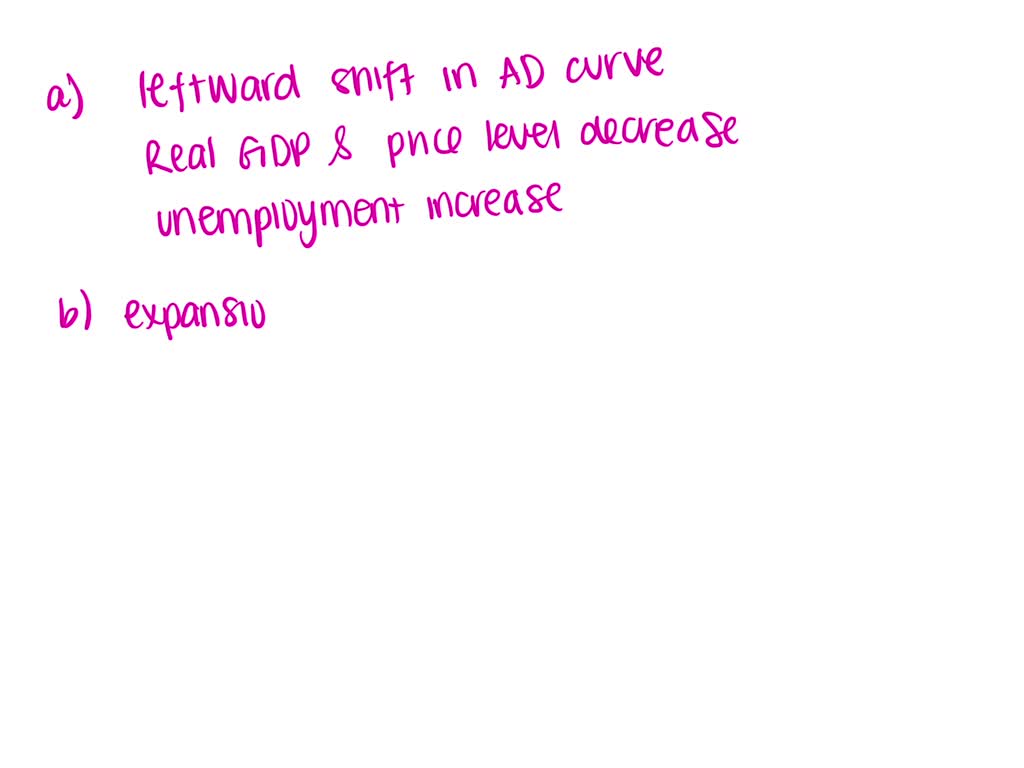 a) leftward shift in AD curve
Real GDP & price level decrease
unemployment increase
b) expansio